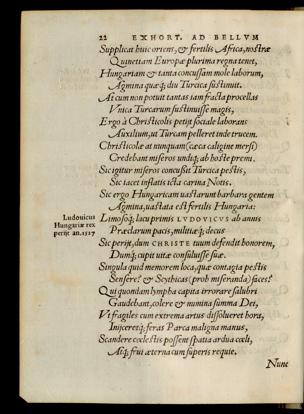 22 EXHORT. AD BELLVM
Supplicat huic oriens, & fertilis Africa, nostræ
Quinetiam Europæ plurima regna tenet,
Hungariam & tanta concussam mole laborum,
Agmina quæq; diu Turcica sustinuit.
At cum non potuit tantas iam fracta procellas
Vnica Turcarum sustinuisse magis,
Ergo à Christicolis petijt sociale laborans
Auxilium, ut Turcam pelleret inde trucem.
Christicolæ at nunquam (cæca caligine mersi)
Credebam miseros undiq; ab hoste premi.
Sic igitur miseros concussit Turcica pestis,
Sic iacet inflatis icta carina Notis.
Sic ergo Hungaricam uastarunt barbara gentem
Agmina, uastata est fertilis Hungaria:
Ludouicus
Hungariæ rex
perijt an. 1527
Limosoq; lacu primis LVDOVICVS ab annis
Præclarum pacis, militiæq; decus
Sic perijt, dum CHRISTE tuum defendit honorem,
Dumq; cupit uitæ consuluisse suæ.
Singula quid memorem loca, quæ contagia pestis
Sensere? & Scythicas (proh miseranda) faces?
Qui quondam lympha capita irrorare salubri
Gaudebant, colere & numina summa Dei,
Vt fragiles cum extrema artus dissolueret hora,
Injiceretq; feras Parca maligna manus,
Scandere cœlestis possem spatia ardua cœli,
Atq; frui æterna cum superis requie.
Nunc